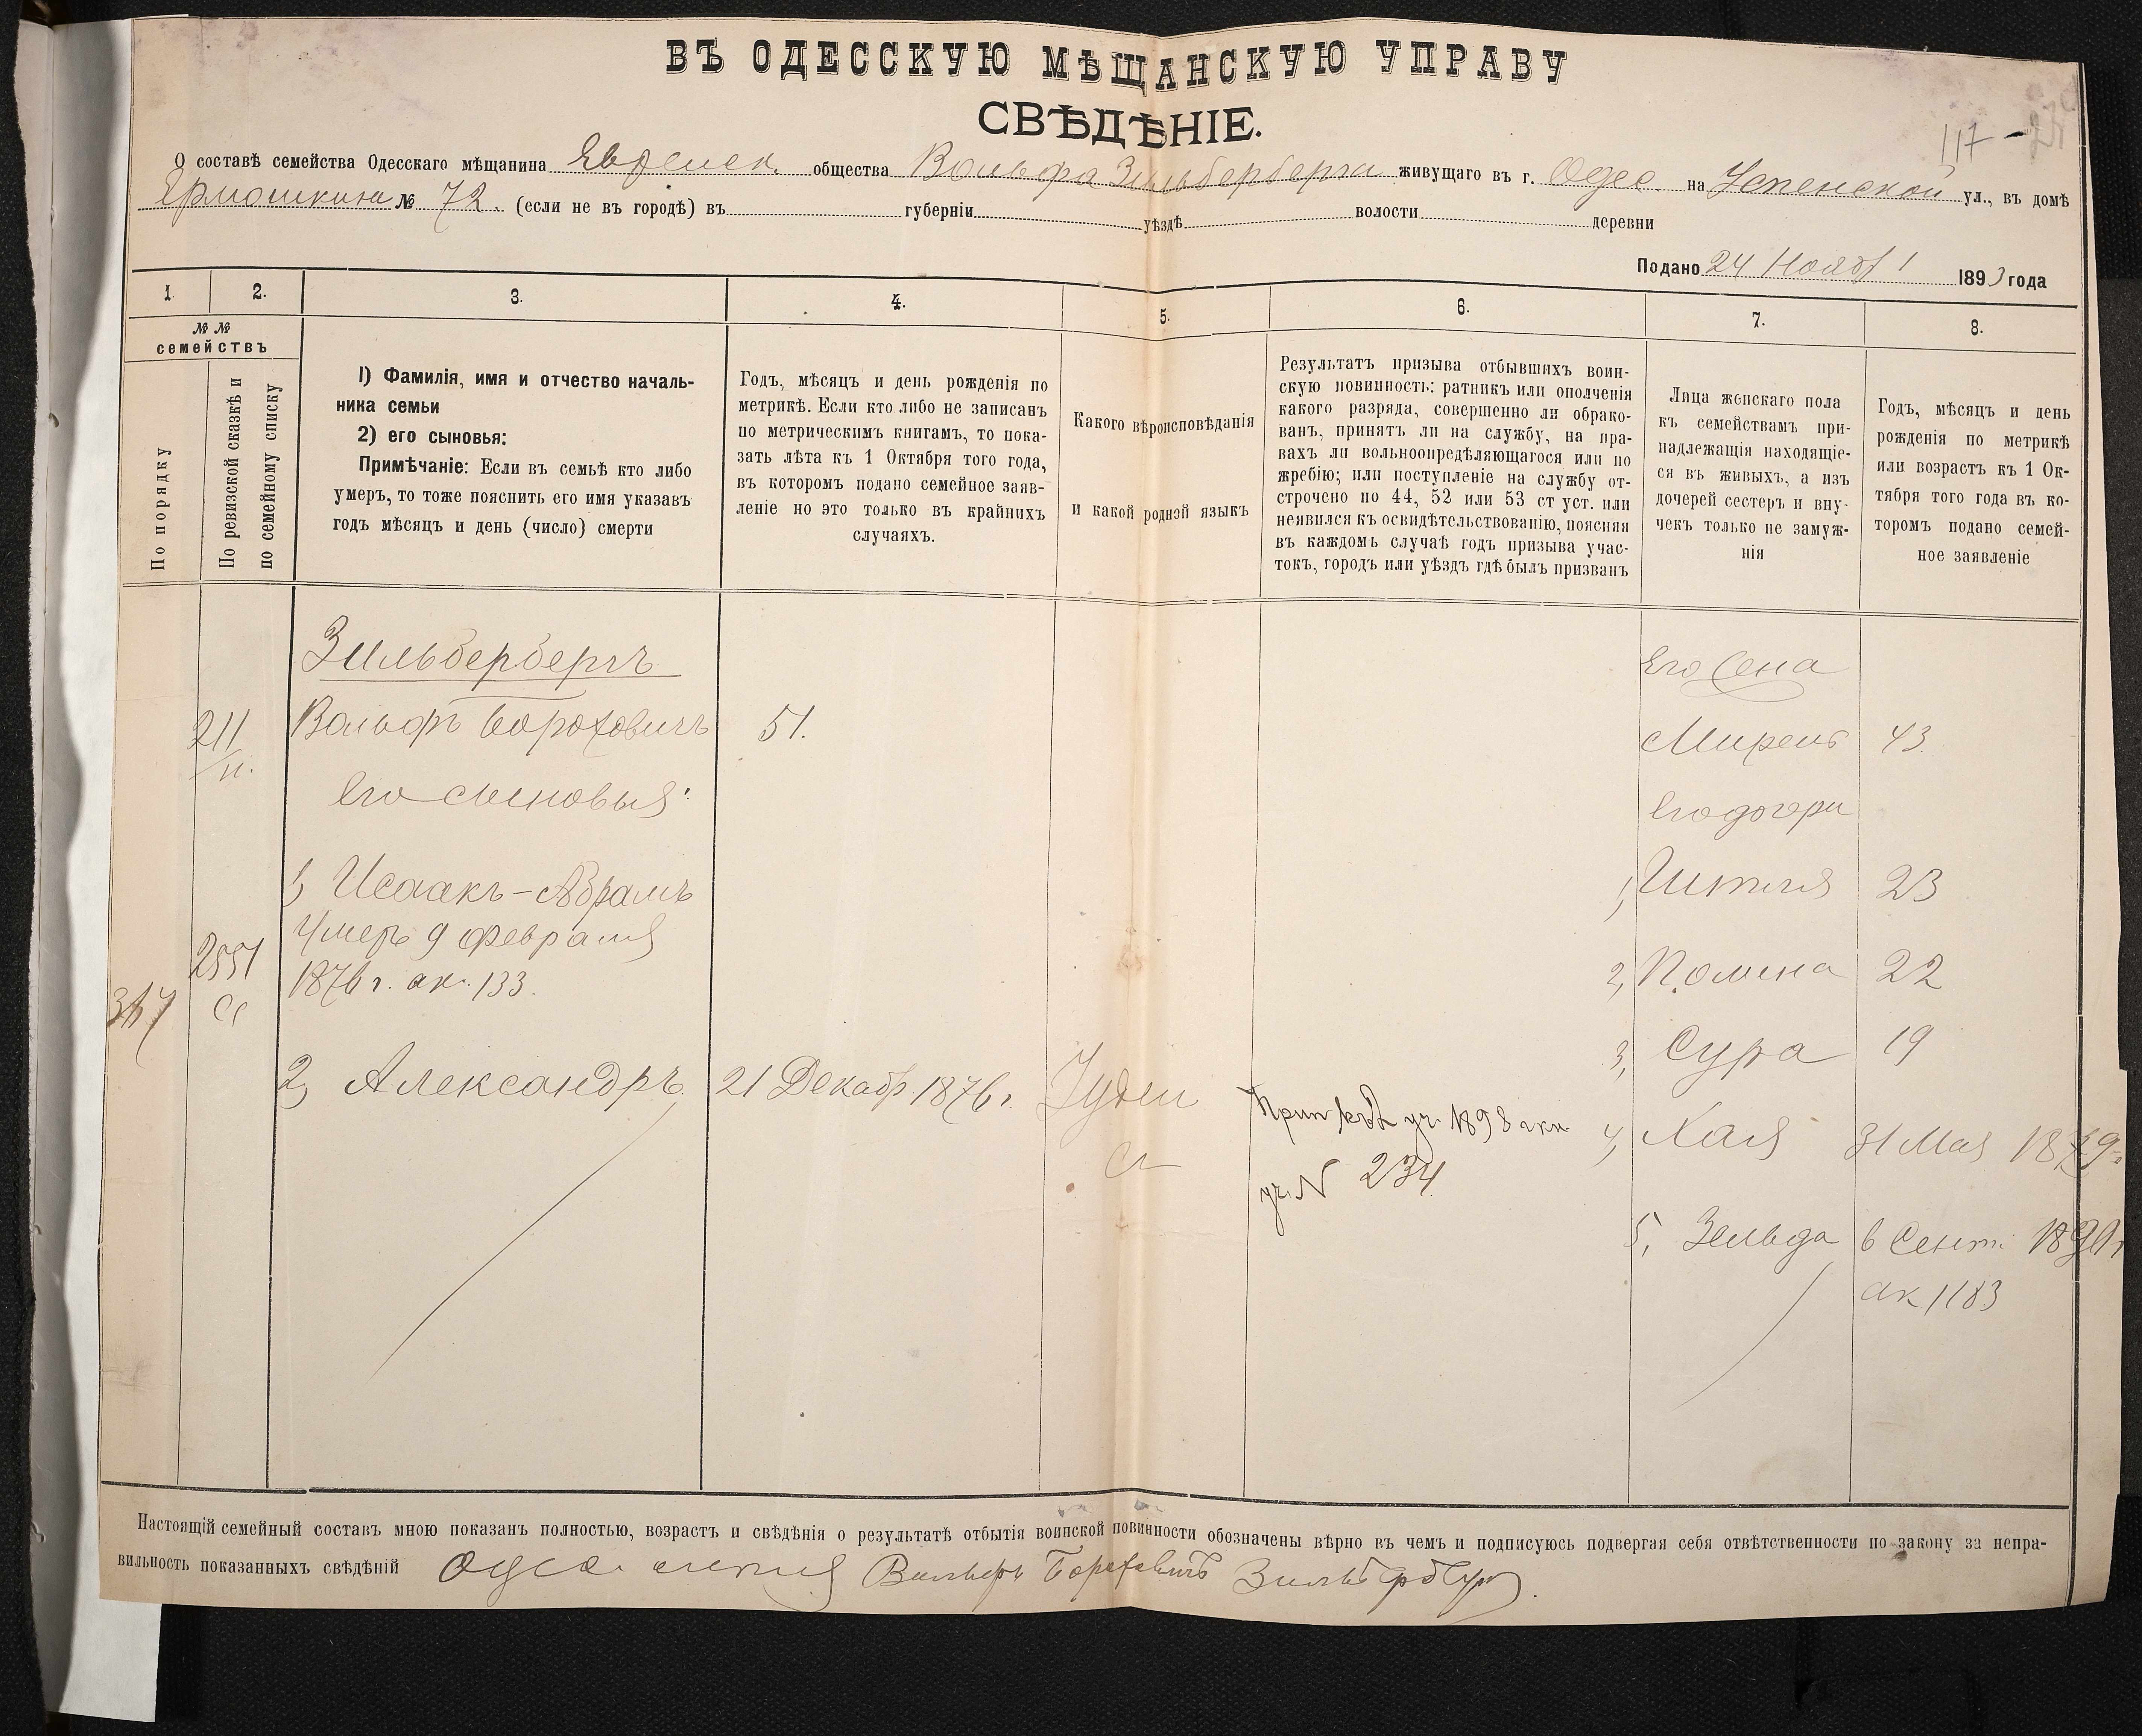 ВЪ ОДЕССКУЮ МѢЩАНСКУЮ УПРАВУ
СВѢДѢНІЕ.
117
О составѣ семейства Одесскаго мѣщанина Еврейск. общества Вольфа Зильберберга живущаго въ г. Одес. на Успенской ул., въ домѣ
Ермошкина № 72. (если не въ городѣ) въ губерніи уѣздѣ волости деревни
Подано 24 Нояб 1893 года
1. 2. 3. 4. 5. 6. 7. 8.
№ №
семействъ
По порядку
По ревизской сказкѣ и
по семейному списку
1) Фамилія, имя и отчество началь-
ника семьи
2) его сыновья:
Примѣчаніе: Если въ семьѣ кто либо
умеръ, то тоже пояснить его имя указавъ
годъ мѣсяцъ и день (число) смерти
Годъ, мѣсяцъ и день рожденія по
метрикѣ. Если кто либо не записанъ
по метрическимъ книгамъ, то пока-
зать лѣта къ 1 Октября того года,
въ которомъ подано семейное заяв-
леніе но это только въ крайнихъ
случаяхъ.
Какого вѣроисповѣданія
и какой родной языкъ
Результатъ призыва отбывшихъ воин-
скую повинность: ратникъ или ополченія
какого разряда, совершенно ли обрако-
ванъ, принятъ ли на службу, на пра-
вахъ ли вольноопредѣляющагося или по
жребію; или поступленіе на службу от-
строчено по 44, 52 или 53 ст уст. или
неявился къ освидѣтельствованію, поясняя
въ каждомъ случаѣ годъ призыва учас-
токъ, городъ или уѣздъ гдѣ былъ призванъ
Лица женскаго пола
къ семействамъ при-
надлежащія находящіе-
ся въ живыхъ, а изъ
дочерей сестеръ и вну-
чекъ только не замуж-
нія
Годъ, мѣсяцъ и день
рожденія по метрикѣ
или возрастъ къ 1 Ок-
тября того года въ ко-
торомъ подано семей-
ное заявленіе
Зильбербергъ
211
Вольфъ Бороховичъ 51.
Его сыновья:
1) Исаакъ-Абрамъ
Умеръ 9 февраля
1876 г. ак. 133.
2551
2) Александръ 21 Декабр 1876 г. Іудей
уч. 1898
уч. N 234
Его жена
43.
Его дочери
1, 23
2, 22
3, Сура 19
4, Хая 31 Мая 1879
5, Зельда 6 Сент.
ак 1183
Настоящій семейный составъ мною показанъ полностью, возрастъ и свѣдѣнія о результатѣ отбытія воинской повинности обозначены вѣрно въ чемъ и подписуюсь подвергая себя отвѣтственности по закону за непра-
вильность показанныхъ свѣдѣній Вольфъ Бороховичъ Зильбербергъ